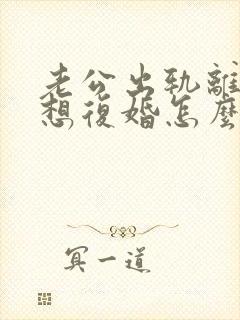 老公出軌離
想復婚怎麼
冥一道